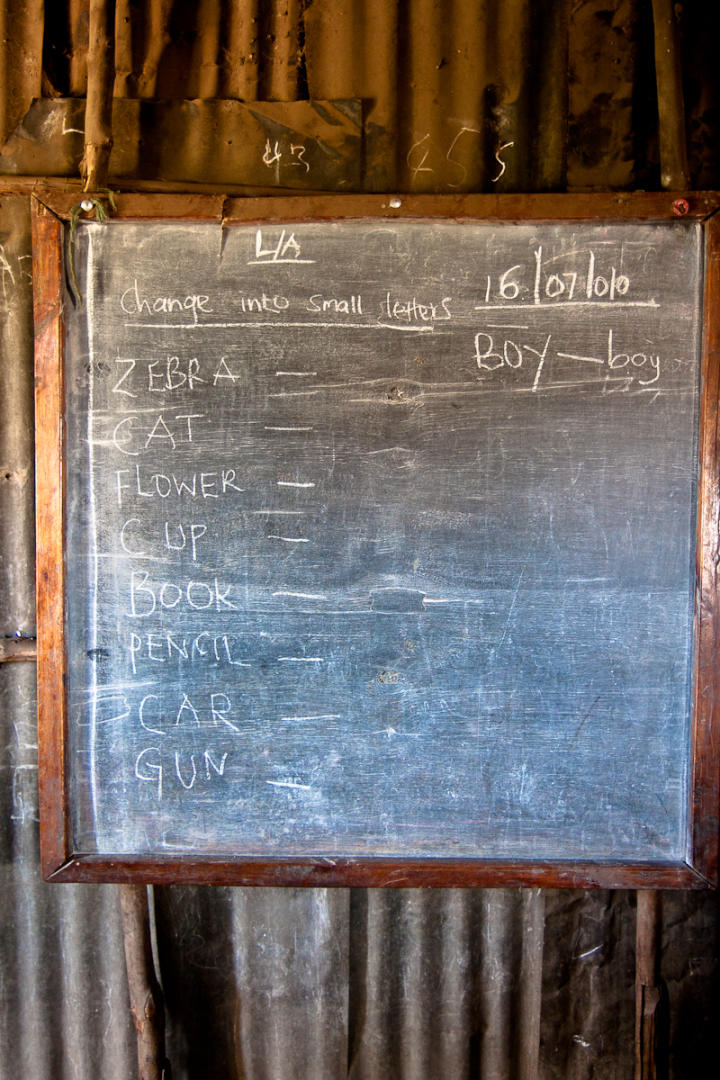 43 455
L/A
16/07/010
Change into small letters
BOY — boy
ZEBRA —
CAT —
FLOWER —
CUP —
BOOK —
PENCIL —
CAR —
GUN —